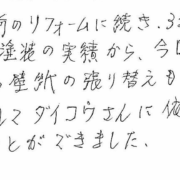 前のリフォームに続き、3
塗装の実績から、今
壁紙の張り替えも
てダイコウさんに依
とができました。